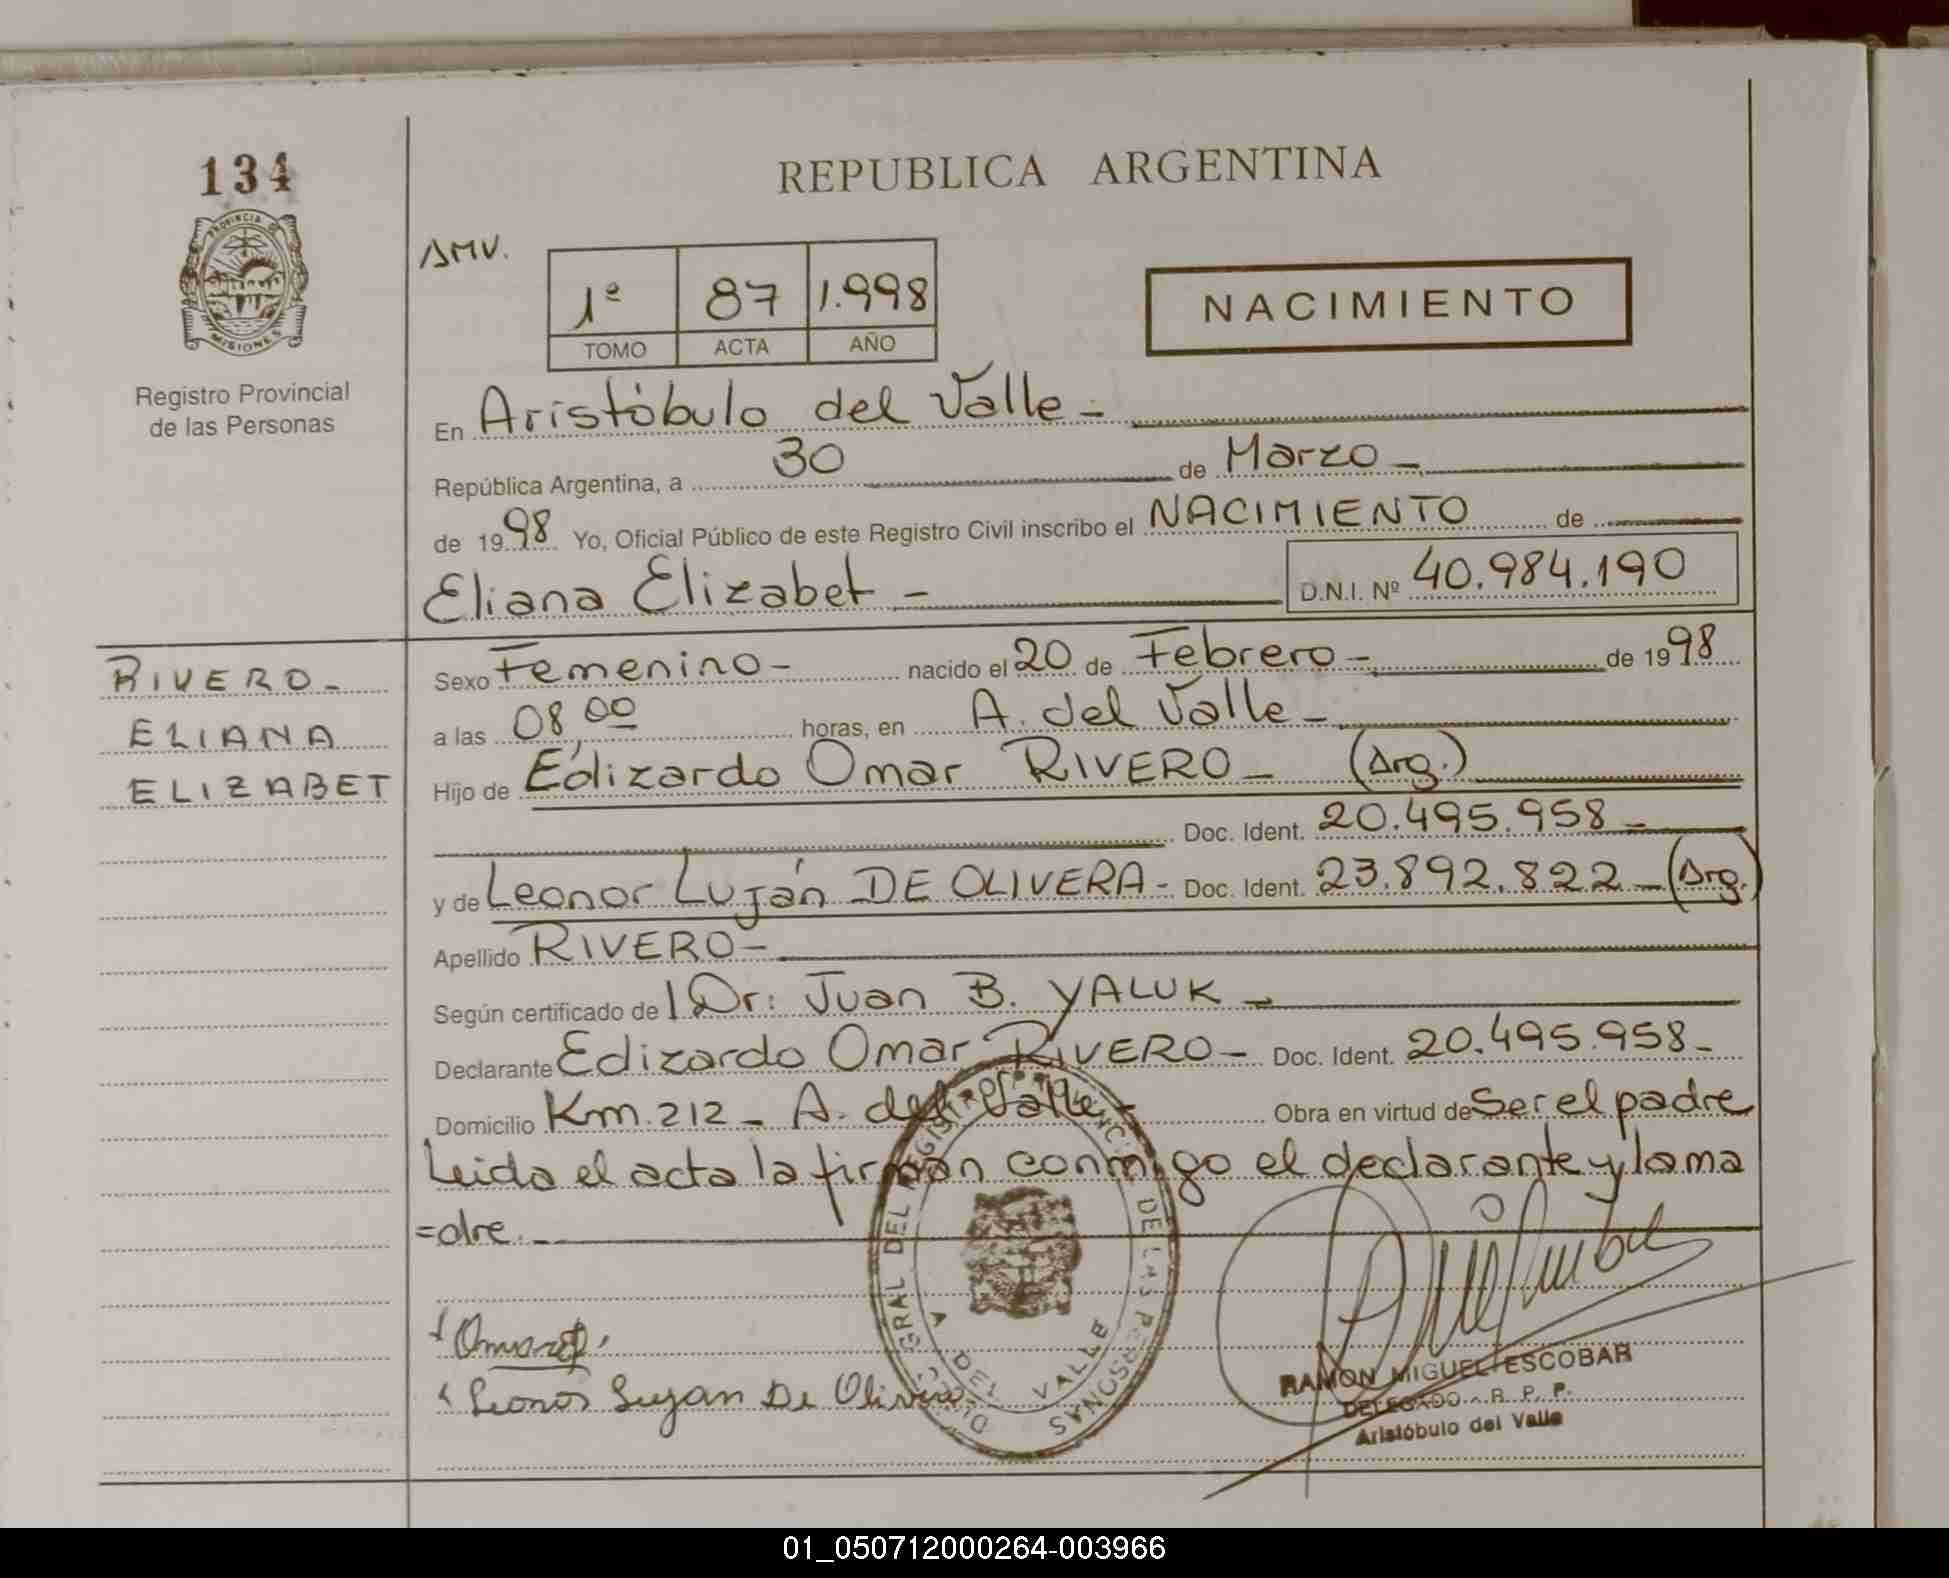 134
PROVINCIA DE
MISIONES
Registro Provincial
de las Personas
REPUBLICA ARGENTINA
AMV.
1º 87 1.998
TOMO ACTA AÑO
NACIMIENTO
En Aristóbulo del Valle -
República Argentina, a 30 de Marzo -
de 1998 Yo, Oficial Público de este Registro Civil inscribo el NACIMIENTO de
Eliana Elizabet - D.N.I. Nº 40.984.190
RIVERO -
ELIANA
ELIZABET
Sexo Femenino - nacido el 20 de Febrero - de 1998
a las 08,00 horas, en A. del Valle -
Hijo de Edizardo Omar RIVERO - (Arg.)
Doc. Ident. 20.495.958 -
y de Leonor Luján DE OLIVERA - Doc. Ident. 23.892.822 - (Arg.)
Apellido RIVERO -
Según certificado de Dr: Juan B. YALUK -
Declarante Edizardo Omar RIVERO - Doc. Ident. 20.495.958 -
Domicilio Km. 212 - A. del Valle - Obra en virtud de Ser el padre
Leida el acta la firman conmigo el declarante y la ma
=dre. -
Leonor Lujan De Olivera
DIREC. GRAL DEL REGISTRO PROVINCIAL DE LAS PERSONAS
A. DEL VALLE
RAMON MIGUEL ESCOBAR
DELEGADO - R. P. P.
Aristóbulo del Valle
01_050712000264-003966